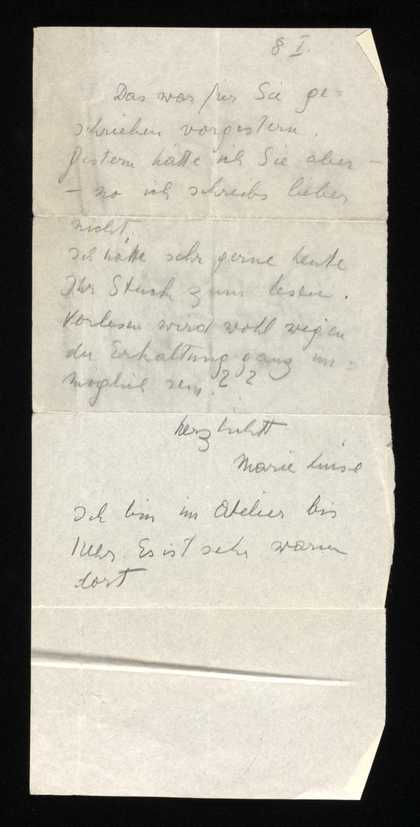 8 I.
Das war für Sie ge-
schrieben vorgestern.
Gestern hätte ich Sie aber –
– na ich schreibs lieber
nicht.
Ich hätte sehr gerne heute
Ihr Stück zum lesen.
Vorlesen wird wohl wegen
der Erhaltung ganz un-
möglich sein. ??
herzlichst
Marie Luise
Ich bin im Atelier bis
1 Uhr. Es ist sehr warm
dort